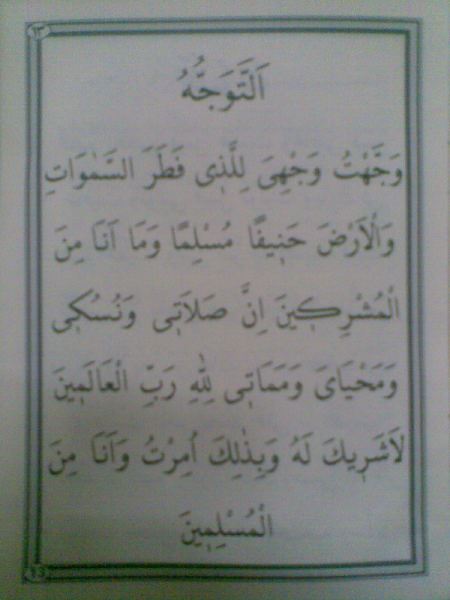 ١٣
اَلتَّوَجُّهُ
وَجَّهْتُ وَجْهِىَ لِلَّذِى فَطَرَ السَّمٰوَاتِ
وَالْاَرْضَ حَنِيفًا مُسْلِمًا وَمَا اَنَا مِنَ
الْمُشْرِكِينَ اِنَّ صَلَاتِى وَنُسُكِى
وَمَحْيَاىَ وَمَمَاتِى لِلّٰهِ رَبِّ الْعَالَمِينَ
لَاشَرِيكَ لَهُ وَبِذٰلِكَ اُمِرْتُ وَاَنَا مِنَ
الْمُسْلِمِينَ